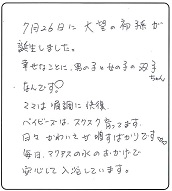 7月26日に 大望の初孫が
誕生しました。
幸せなことに、男の子と女の子の双子
ちゃん
なんです♡
ママは順調に快復
ベイビーズは、スクスク育ってます。
日々 かわいさが増すばかりです
毎日、マグマスの水のおかげで
安心して入浴しています。